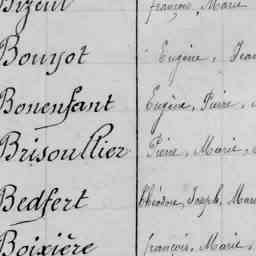 françois, Marie
Bouyot Eugène, Jean
Bonenfant Eugène, Pierre,
Brisoullier Pierre, Marie,
Bedfert Théodore, Joseph, Marie
Boixière françois, Marie,